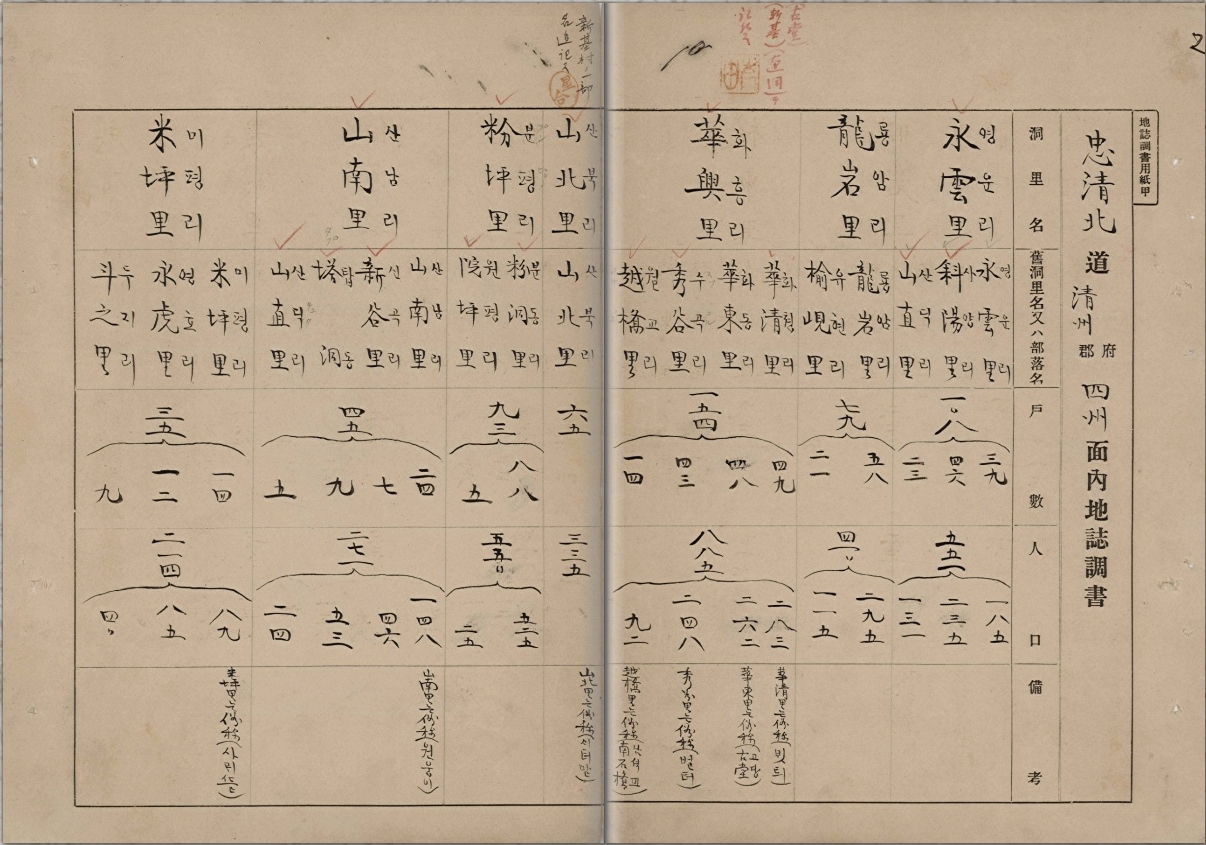 2
地誌調書用紙甲
忠清北道清州府郡四州面內地誌調書
洞里名
舊洞里名又ハ部落名
戶數
人口
備考
永雲里 영운리
永雲里 영운리
科陽里 사양리
山直里 산직리
一〇八
三九
四六
二三
五五一
一八五
二三五
一三一
龍岩里 룡암리
龍岩里 룡암리
榆峴里 유현리
七九
五八
二一
四一〇
二九五
一一五
古堂
(新基)
華興里 화흥리
華清里 화청리
華東里 화동리
秀谷里 수곡리
越橋里 월교리
一五四
四九
四八
四三
一四
八八五
二八三
二六二
二四八
九二
華清里
華東里 (古堂)
秀谷里
越橋里 (南石橋)
新基村ノ一部
山北里 산북리
山北里 산북리
六五
三三五
山北里
粉坪里 분평리
粉洞里 분동리
院坪里 원평리
九三
八八
五
五五〇
五二五
二五
山南里 산남리
山南里 산남리
新谷里 신곡리
塔洞 탑동
山直里 산직리
四五
二四
七
九
五
二七一
一四八
四六
五三
二四
山南里
米坪里 미평리
米坪里 미평리
永虎里 영호리
斗之里 두지리
三五
一四
一二
九
二一四
八九
八五
四〇
米坪里